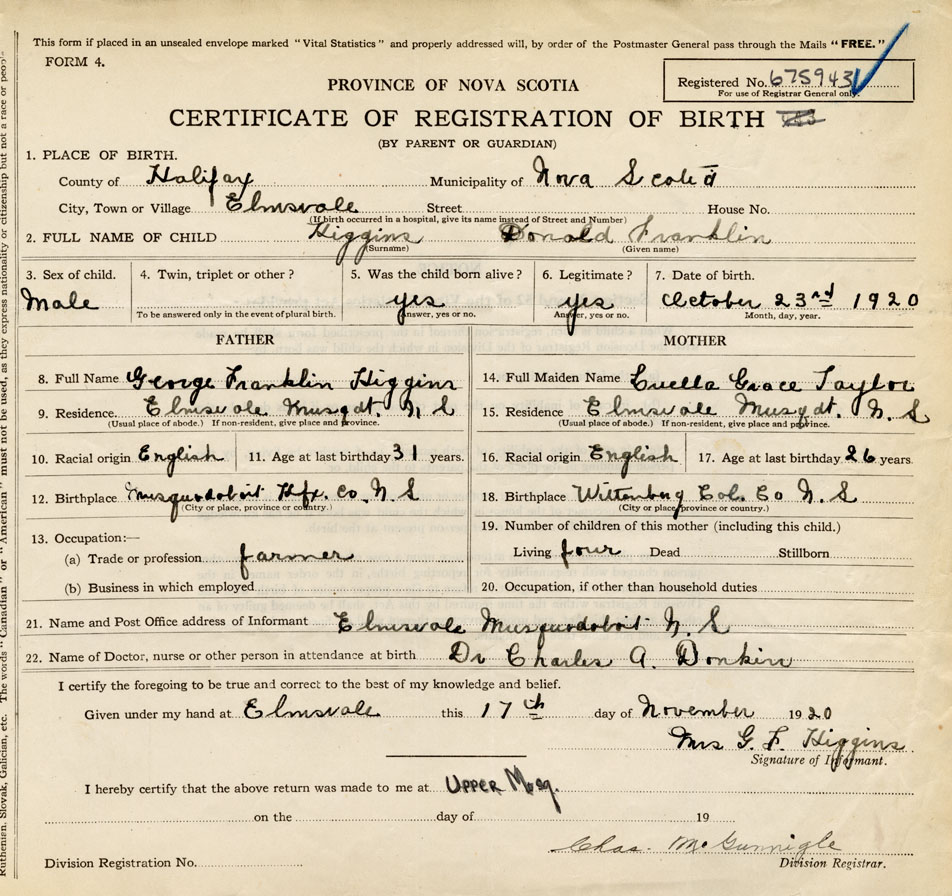 This form if placed in an unsealed envelope marked "Vital Statistics" and properly addressed will, by order of the Postmaster General pass through the Mails "FREE."
FORM 4.
Registered No. 675943
For use of Registrar General only.
PROVINCE OF NOVA SCOTIA
CERTIFICATE OF REGISTRATION OF BIRTH
(BY PARENT OR GUARDIAN)
1. PLACE OF BIRTH.
County of Halifax Municipality of Nova Scotia
City, Town or Village Elmsvale Street House No.
(If birth occurred in a hospital, give its name instead of Street and Number)
2. FULL NAME OF CHILD Higgins Donald Franklin
(Surname) (Given name)
3. Sex of child. 4. Twin, triplet or other? 5. Was the child born alive? 6. Legitimate? 7. Date of birth.
Male yes yes October 23rd 1920
To be answered only in the event of plural birth. Answer, yes or no. Answer, yes or no. Month, day, year.
FATHER MOTHER
8. Full Name George Franklin Higgins 14. Full Maiden Name Luella Grace Taylor
9. Residence. Elmsvale Musqdt. N S 15. Residence Elmsvale Musqdt. N. S
(Usual place of abode.) If non-resident, give place and province. (Usual place of abode.) If non-resident, give place and province.
10. Racial origin English 11. Age at last birthday 31 years. 16. Racial origin English 17. Age at last birthday 26 years.
12. Birthplace Musquodoboit Hfx. Co. N S 18. Birthplace Wittenberg Col. Co N. S
(City or place, province or country.) (City or place, province or country.)
13. Occupation:— 19. Number of children of this mother (including this child.)
(a) Trade or profession farmer Living four Dead Stillborn
(b) Business in which employed 20. Occupation, if other than household duties
21. Name and Post Office address of Informant Elmsvale Musquodoboit N. S
22. Name of Doctor, nurse or other person in attendance at birth Dr Charles A. Donkin
I certify the foregoing to be true and correct to the best of my knowledge and belief.
Given under my hand at Elmsvale this 17th day of November 1920
Mrs G. F. Higgins.
Signature of Informant.
I hereby certify that the above return was made to me at UPPER Musq.
on the day of 19
Chas. McGunnigle
Division Registration No. Division Registrar.
Ruthenian, Slovak, Galician, etc. The words "Canadian" or "American" must not be used, as they express nationality or citizenship but not a race or